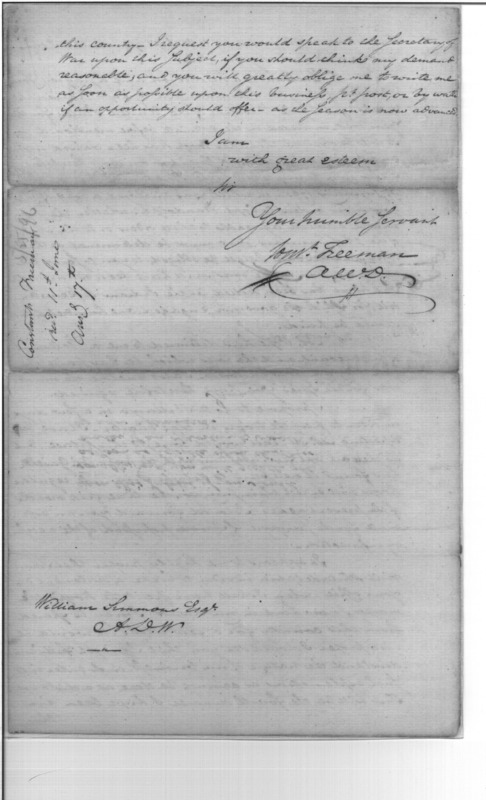 this county - I request you would speak to the Secretary of
War upon this Subject, if you should think my demand
reasonable, and you will greatly oblige me to write me
as soon as possible upon this business pr post, or by water
if an opportunity should offer - as the season is now advanced
I am
with great esteem
Sir
Your humble Servant
Const. Freeman
A W D.
Constant Freeman
recd. 11th June
Ansd 17th
William Simmons Esqr.
A. D. W.